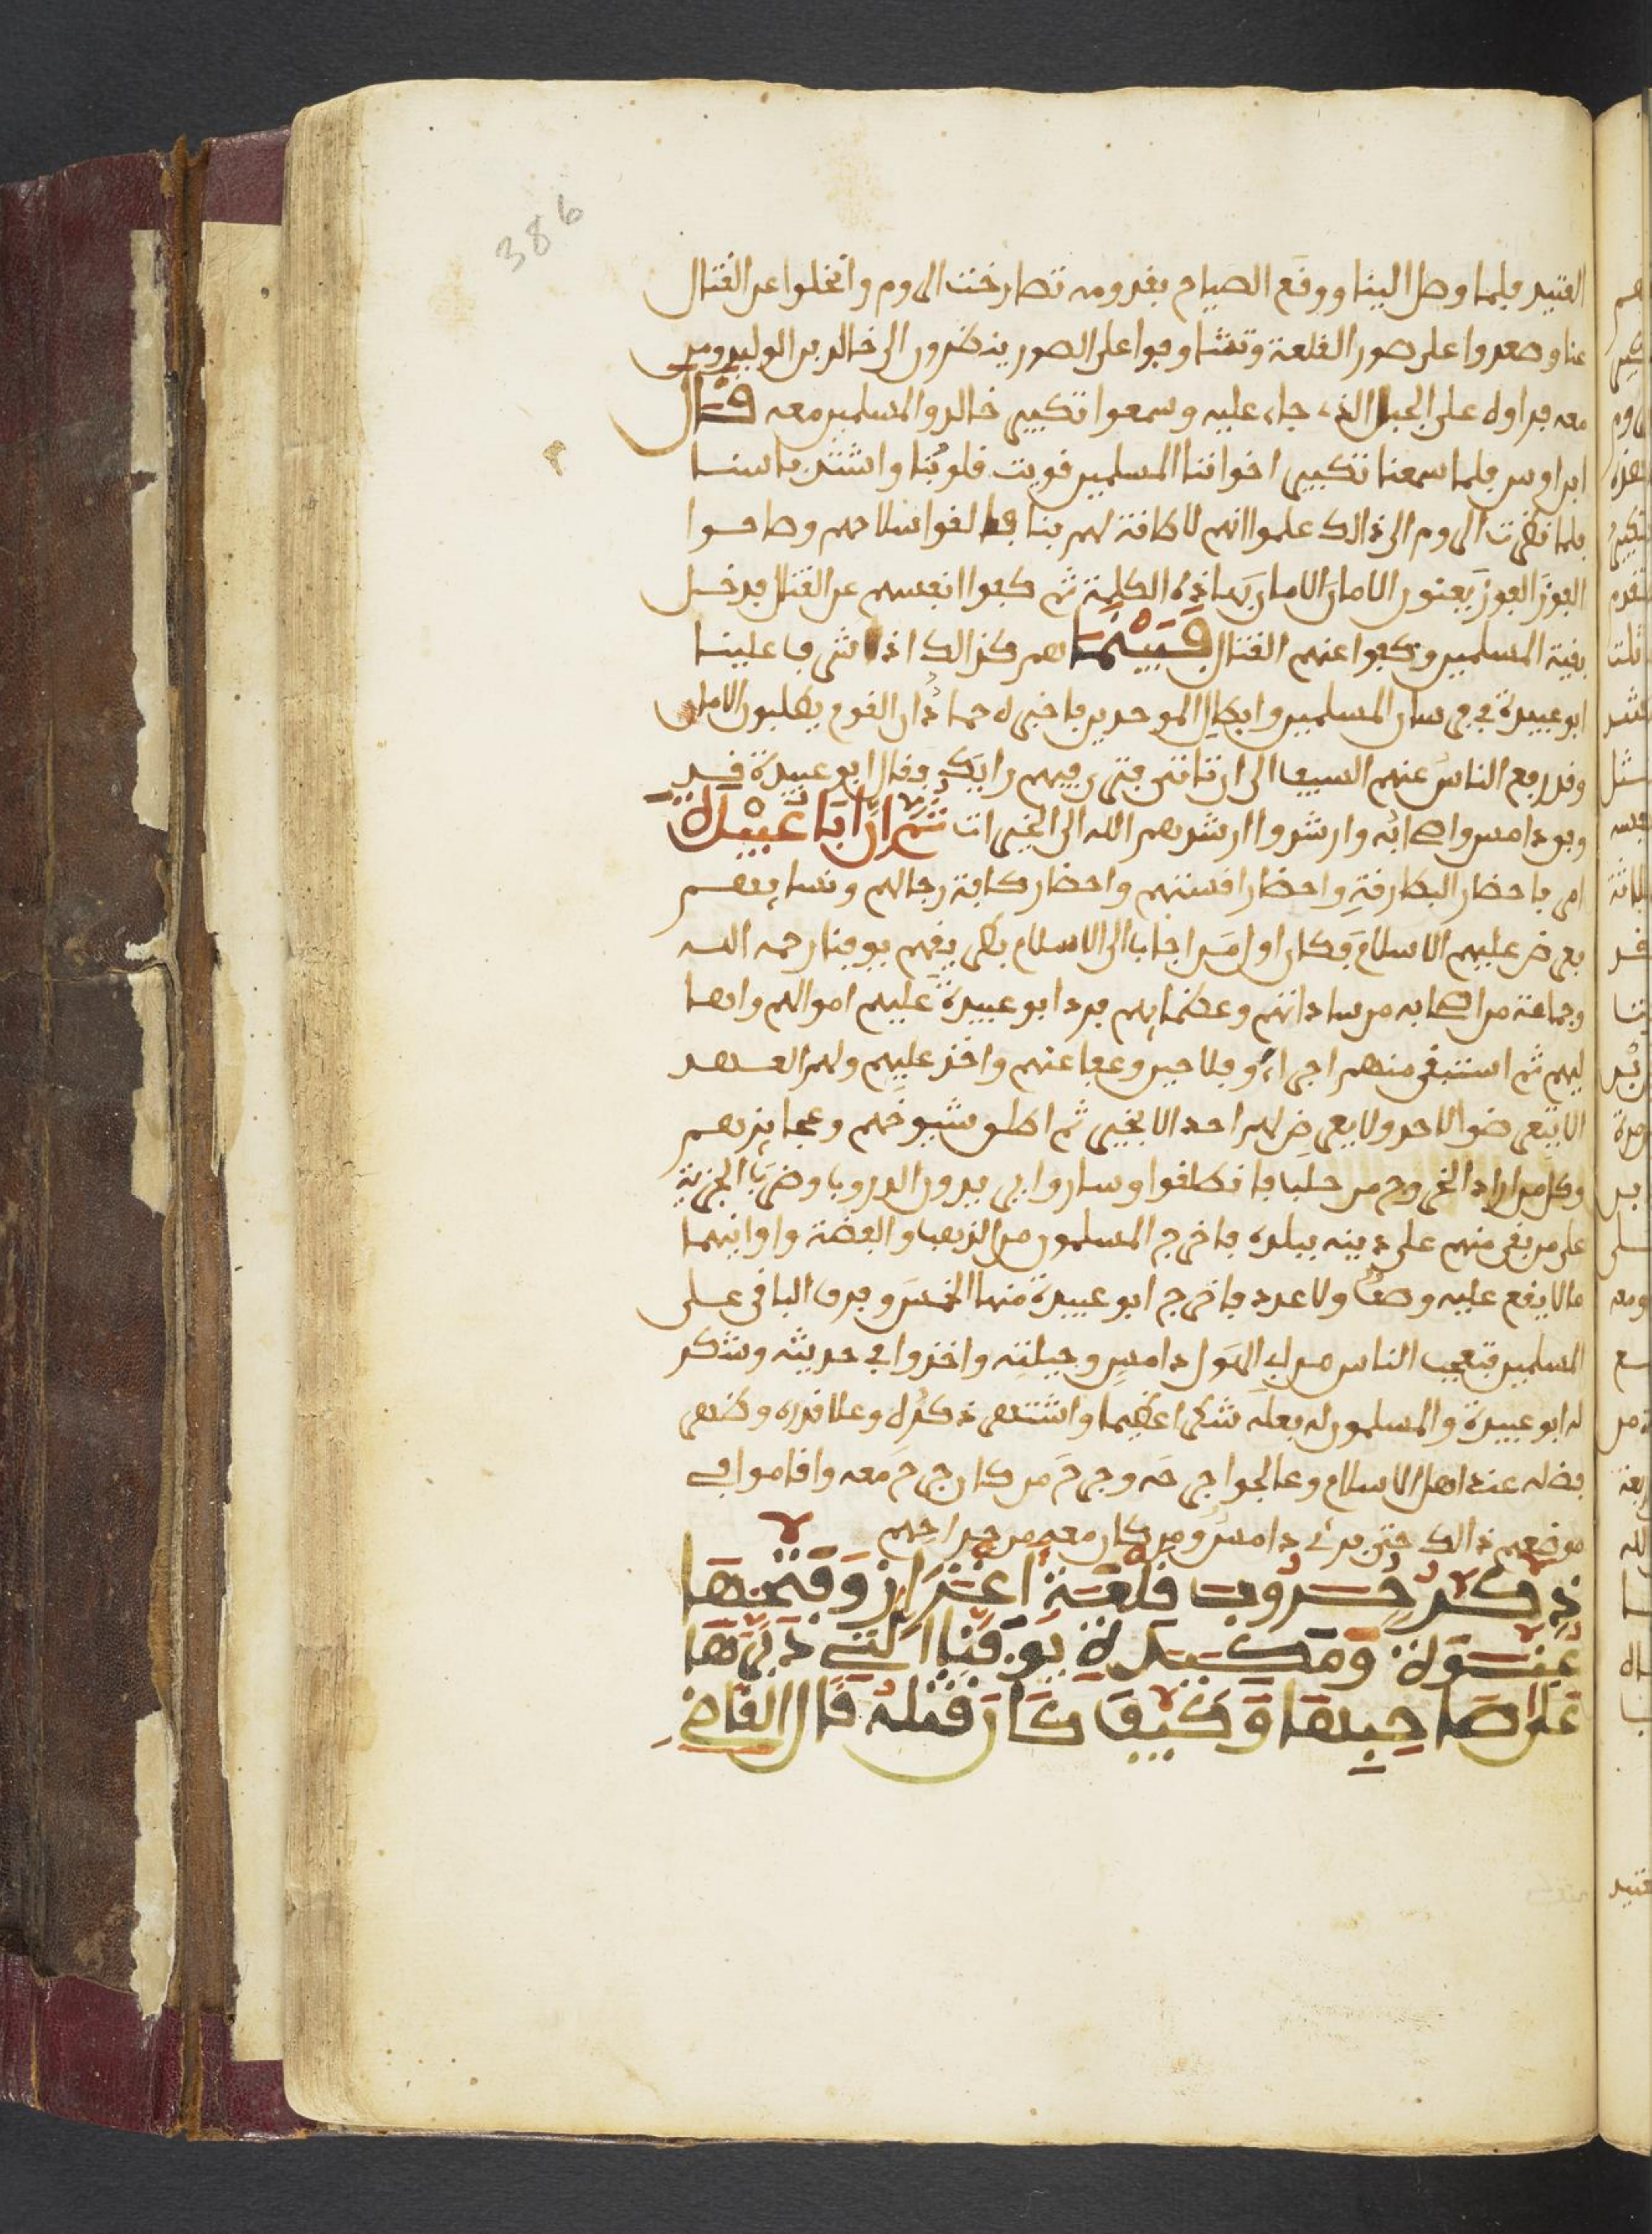 386
القتيل فلما وصل الينا ووقع الصياح بقدومه تصارخت الروم وانخلوا عن القتال
عنا وصعدوا على صور القلعة وتشاوفوا على الصور ينظرون الى خالد بن الوليد ومن
معه فراوه على الجبل الذي جاء عليه وسمعوا تكبير خالد والمسلمين معه قال
ابن اوس فلما سمعنا تكبير اخواننا المسلمين قويت قلوبنا واشتد باسنا
فلما نظرت الروم الى ذالك علموا انهم لا طاقة لهم بنا فالقوا سلاحهم وصاحوا
الغوز الغوز يعنون الامان الامان بهاذه الكلمة ثم كفوا انفسهم عن القتال فدخل
بقية المسلمين وكفوا عنهم القتال فبينما هم كذالك اذ اشرف علينا
ابو عبيدة في فرسان المسلمين وابطال الموحدين فاخبره جماعة ان القوم يطلبون الامان
وقد رفع الناس عنهم السيف الى ان تاتي فترى فيهم رايك فقال ابو عبيدة قد
وفق دامس واصحابه وارشدوا ارشدهم الله الى الخيرات ثم ان ابا عبيدة
امر باحضار البطارقة واحضار اقستهم واحضار كافة رجالهم ونسايهم
فعرض عليهم الاسلام فكان اول من اجاب الى الاسلام بطريقهم يوقنا رحمه الله
وجماعة من اصحابه من ساداتهم وعظمايهم فرد ابو عبيدة عليهم اموالهم واها
ليهم ثم استبقى منهم اجراء وفلاحين وعفا عنهم واخذ عليهم ولهم العهد
الا يتعرضوا لاحد ولا يعرض لهم احد الا بخير ثم اطلق شيوخهم وعجايزهم
وكل من اراد الخروج من حلب فانطلقوا وساروا يريدون الدروب وضرب الجزية
على من بقي منهم على دينه ببلده فاخرج المسلمون من الذهب والفضة واوانيهما
مالا يقع عليه وصف ولا عدد فاخرج ابو عبيدة منها الخمس وفرق الباقي على
المسلمين فتعجب الناس من ابي الهول دامس وحيلته واخذوا في حديثه وشكر
له ابو عبيدة والمسلمون له بعله شكرا عظيما واشتهر ذكره وعلا قدره وظهر
فضله عند اهل الاسلام وعالجوا جرحه وجرح من كان جرح معه واقاموا في
موضعهم ذالك حتى برئ دامس ومن كان معه من جراحهم
ذكر حروب قلعة اعزاز وفتحها
عنوة ومكيدة يوقنا التي دبرها
على صاحبها وكيف كان قتله قال القاضي